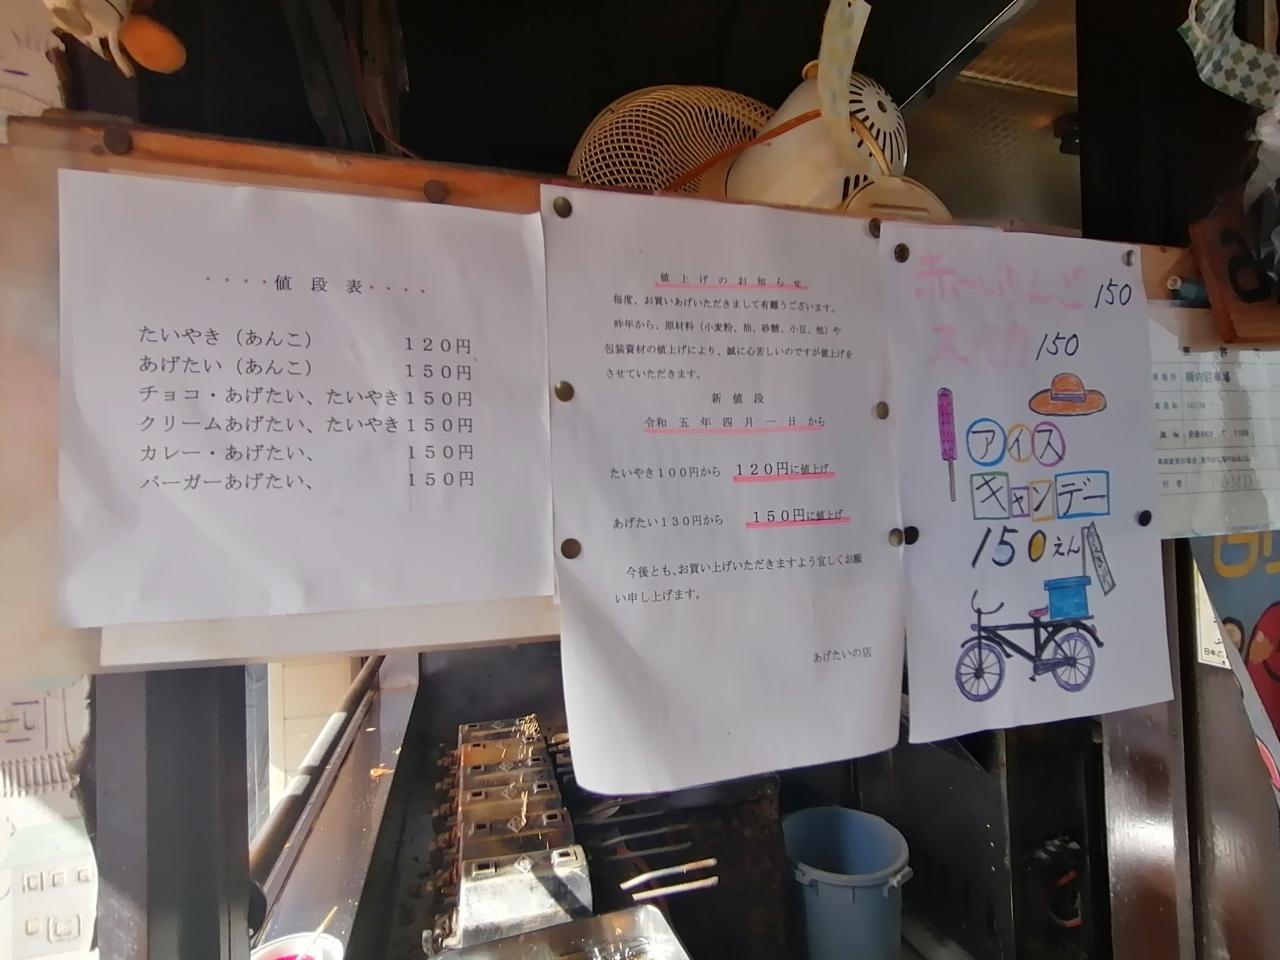 ・・・・値 段 表・・・・
たいやき（あんこ） １２０円
あげたい（あんこ） １５０円
チョコ・あげたい、たいやき１５０円
クリームあげたい、たいやき１５０円
カレー・あげたい、 １５０円
バーガーあげたい、 １５０円
値 上 げ の お 知 ら せ
毎度、お買いあげいただきまして有難うございます。
昨年から、原材料（小麦粉、油、砂糖、小豆、他）や
包装資材の値上げにより、誠に心苦しいのですが値上げを
させていただきます。
新 値 段
令和 五 年 四 月 一 日 から
たいやき１００円から １２０円に値上げ
あげたい１３０円から １５０円に値上げ
今後とも、お買い上げいただきますよう宜しくお願
い申し上げます。
あげたいの店
赤〜いりんご 150
150
アイス
キャンデー
150えん